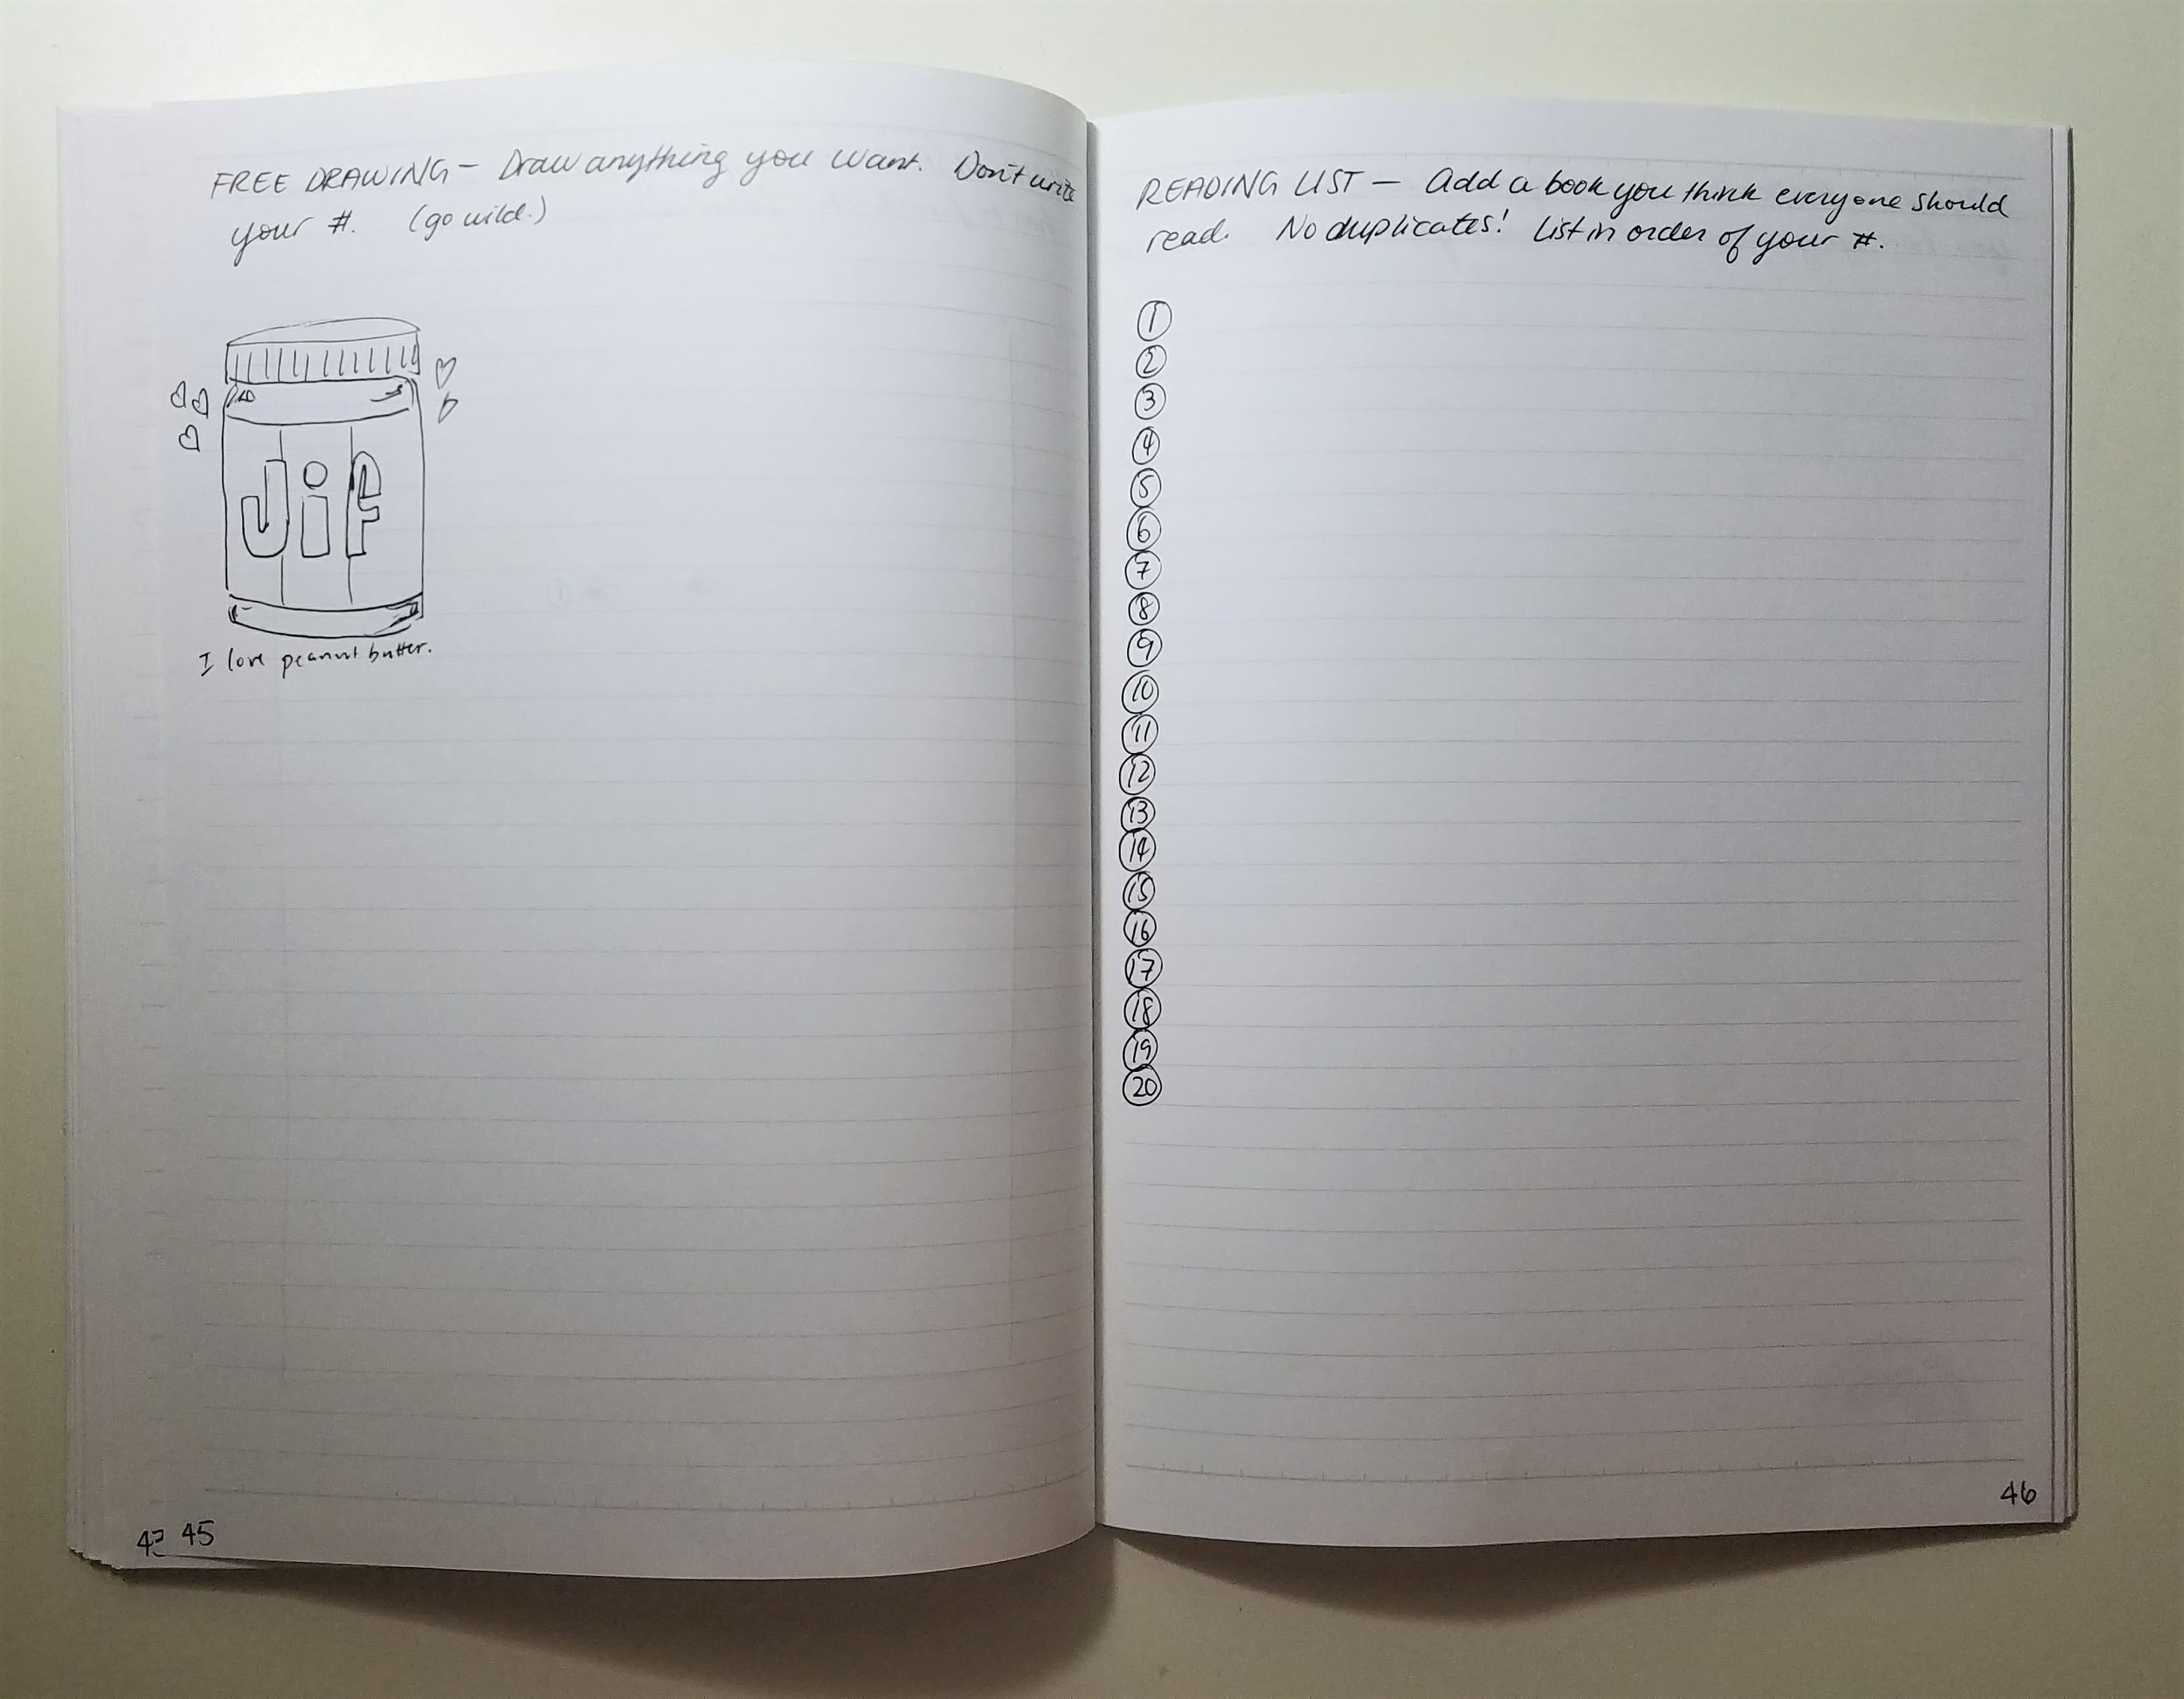 FREE DRAWING - Draw anything you want. Don't write
your #. (go wild.)
Jif
I love peanut butter.
43 45
READING LIST - Add a book you think everyone should
read. No duplicates! List in order of your #.
1
2
3
4
5
6
7
8
9
10
11
12
13
14
15
16
17
18
19
20
46